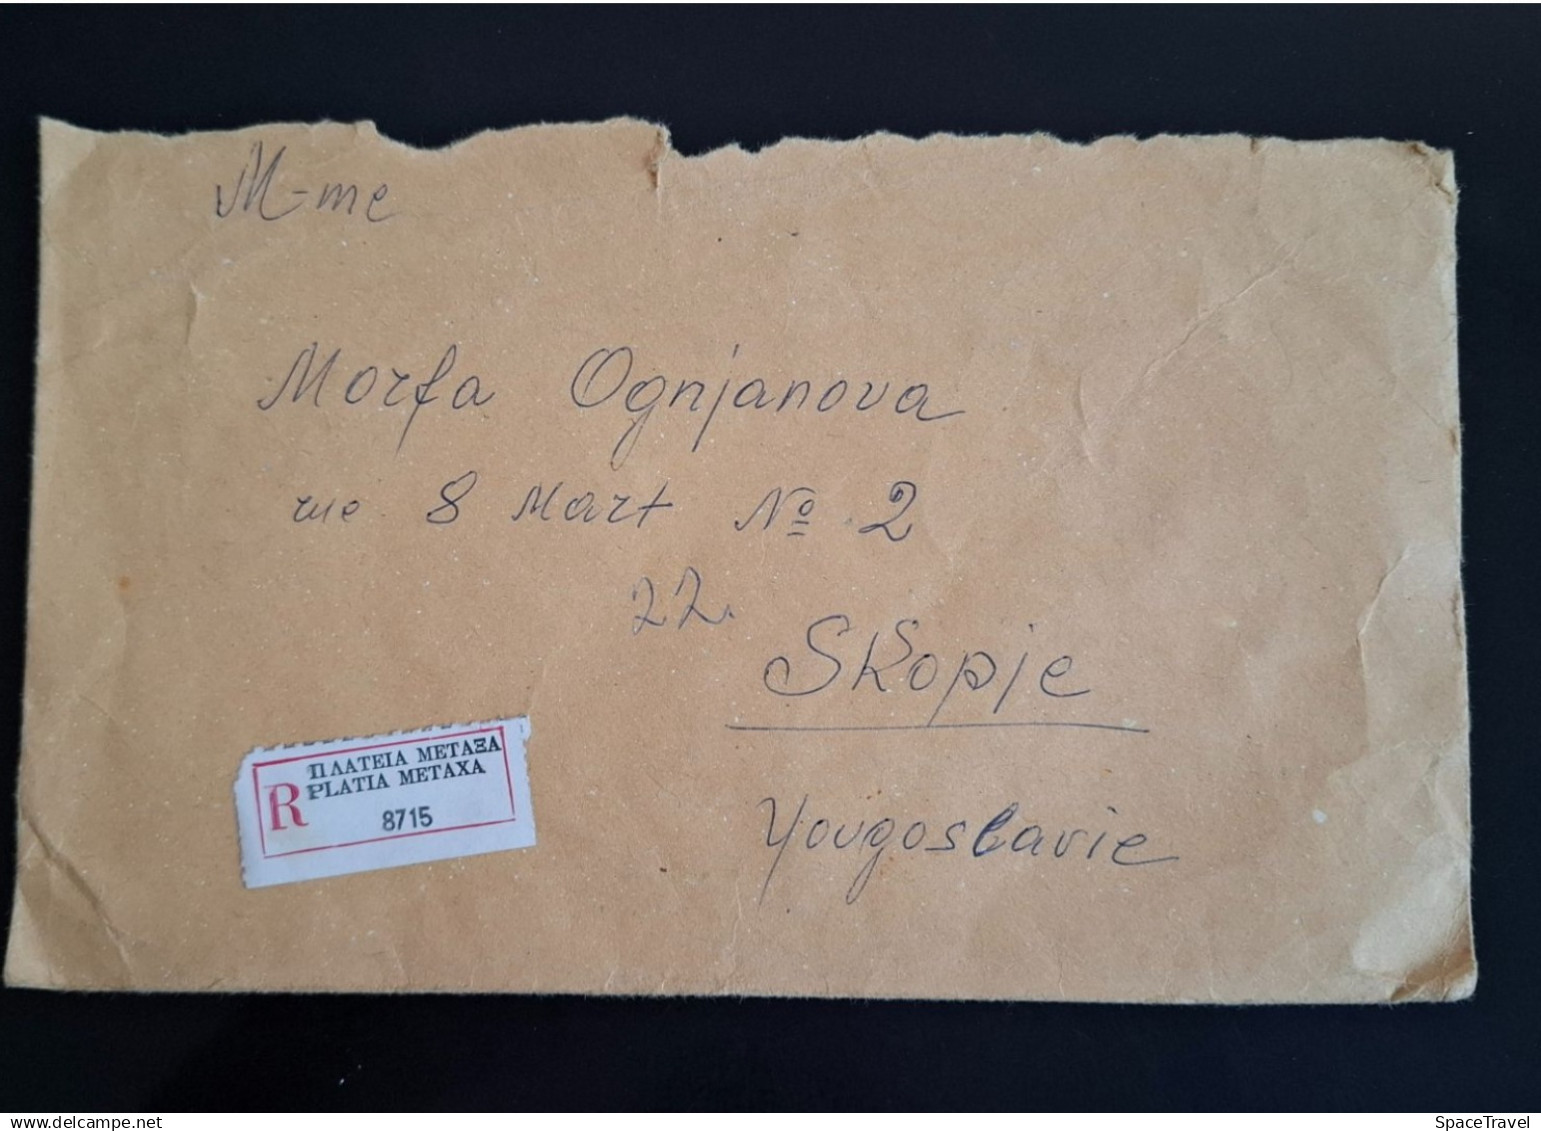 M-me
Morfa Ognjanova
rue 8 Mart № 2
22.
Skopje
Yougoslavie
R
ΠΛΑΤΕΙΑ ΜΕΤΑΞΑ
PLATIA METAXA
8715
www.delcampe.net
SpaceTravel